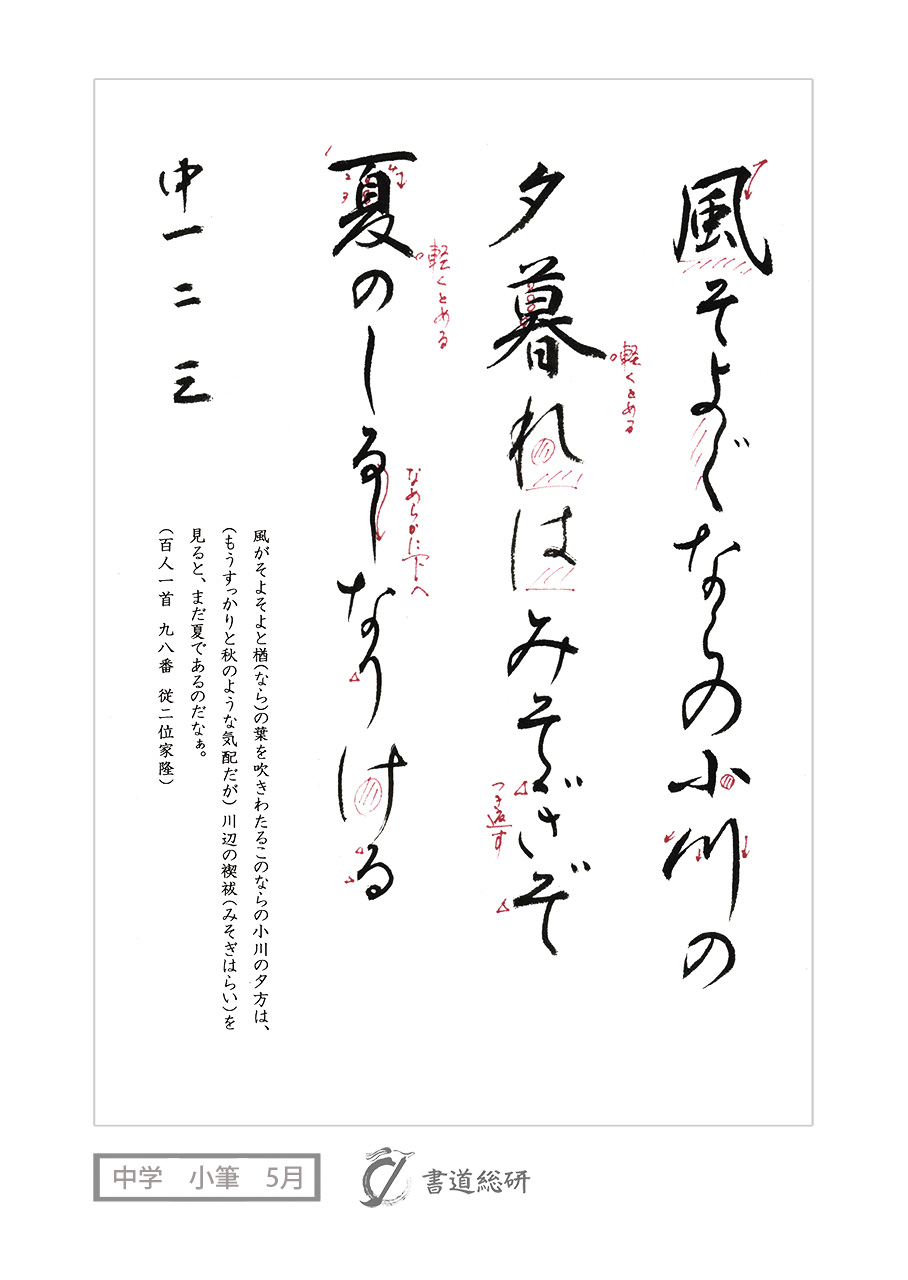 風そよぐならの小川の
夕暮れはみそぎぞ
夏のしるしなりける
中一二三
軽くとめる
軽くとめる
なめらかに下へ
つき返す
風がそよそよと楢(なら)の葉を吹きわたるこのならの小川の夕方は、
(もうすっかりと秋のような気配だが)川辺の禊祓(みそぎはらい)を
見ると、まだ夏であるのだなぁ。
(百人一首 九八番 従二位家隆)
中学 小筆 5月
書道総研